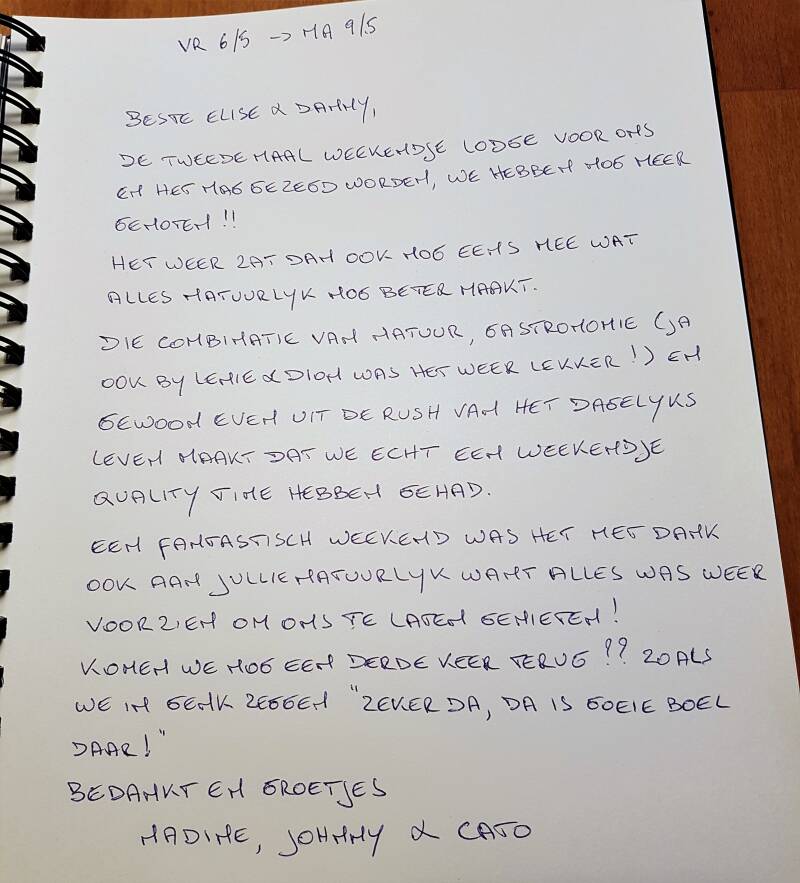 VR 6/5 → MA 9/5
BESTE ELISE & DANNY,
DE TWEEDE MAAL WEEKENDJE LODGE VOOR ONS
EN HET MAG GEZEGD WORDEN, WE HEBBEN NOG MEER
GENOTEN !!
HET WEER ZAT DAN OOK NOG EENS MEE WAT
ALLES NATUURLYK NOG BETER MAAKT.
DIE COMBINATIE VAN NATUUR, GASTRONOMIE (JA
OOK BY LENIE & DION WAS HET WEER LEKKER !) EN
GEWOON EVEN UIT DE RUSH VAN HET DAGELYKS
LEVEN MAAKT DAT WE ECHT EEN WEEKENDJE
QUALITY TIME HEBBEN GEHAD.
EEN FANTASTISCH WEEKEND WAS HET MET DANK
OOK AAN JULLIE NATUURLYK WANT ALLES WAS WEER
VOORZIEN OM ONS TE LATEN GENIETEN !
KOMEN WE NOG EEN DERDE KEER TERUG ?? ZOALS
WE IN GENK ZEGGEN "ZEKER DA, DA IS GOEIE BOEL
DAAR !"
BEDANKT EN GROETJES
NADINE, JOHNNY & CATO